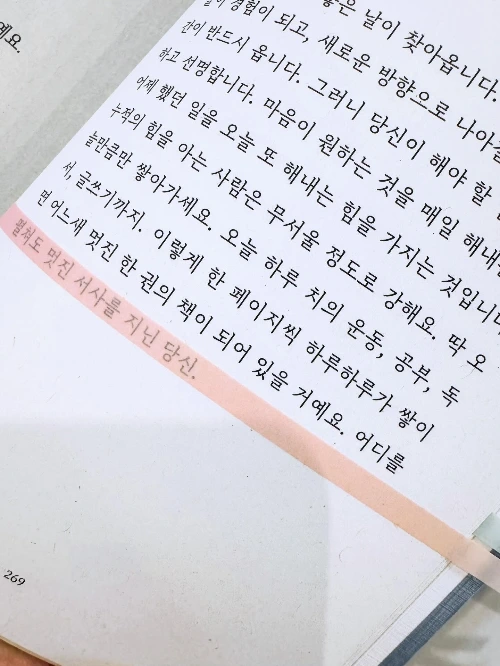 예요.
좋은 날이 찾아옵니다.
경험이 되고, 새로운 방향으로 나아갈
간이 반드시 옵니다. 그러니 당신이 해야 할
하고 선명합니다. 마음이 원하는 것을 매일 해내
어제 했던 일을 오늘 또 해내는 힘을 가지는 것입니다
누적의 힘을 아는 사람은 무서울 정도로 강해요. 딱 오
늘만큼만 쌓아가세요. 오늘 하루 치의 운동, 공부, 독
서, 글쓰기까지. 이렇게 한 페이지씩 하루하루가 쌓이
면 어느새 멋진 한 권의 책이 되어 있을 거예요. 어디를
펼쳐도 멋진 서사를 지닌 당신.
269